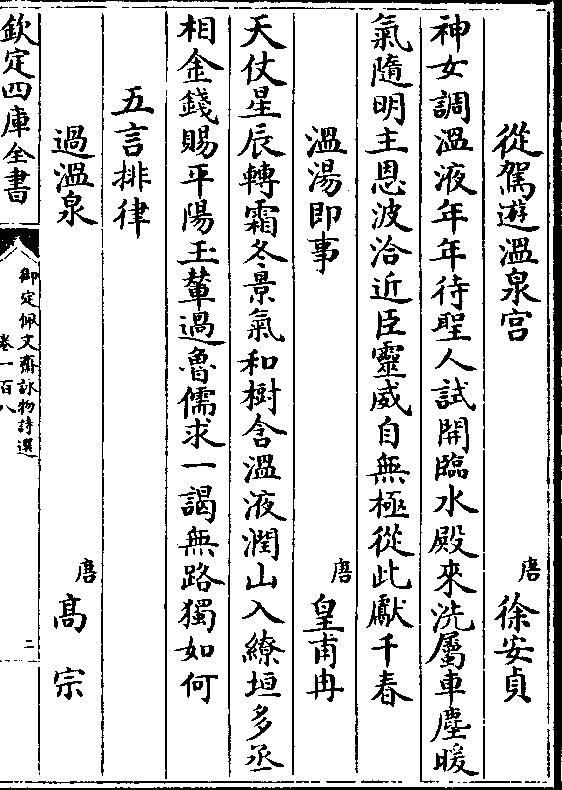 從駕遊溫泉宮
唐 徐安貞
神女調溫液年年待聖人試開臨水殿來洗屬車塵暖
氣隨明主恩波洽近臣靈威自無極從此獻千春
溫湯即事
唐 皇甫冉
天仗星辰轉霜冬景氣和樹含溫液潤山入繚垣多丞
相金錢賜平陽玉輦過魯儒求一謁無路獨如何
五言排律
過溫泉
唐 髙宗
欽定四庫全書
御定佩文齋詠物詩選
卷一百八
二